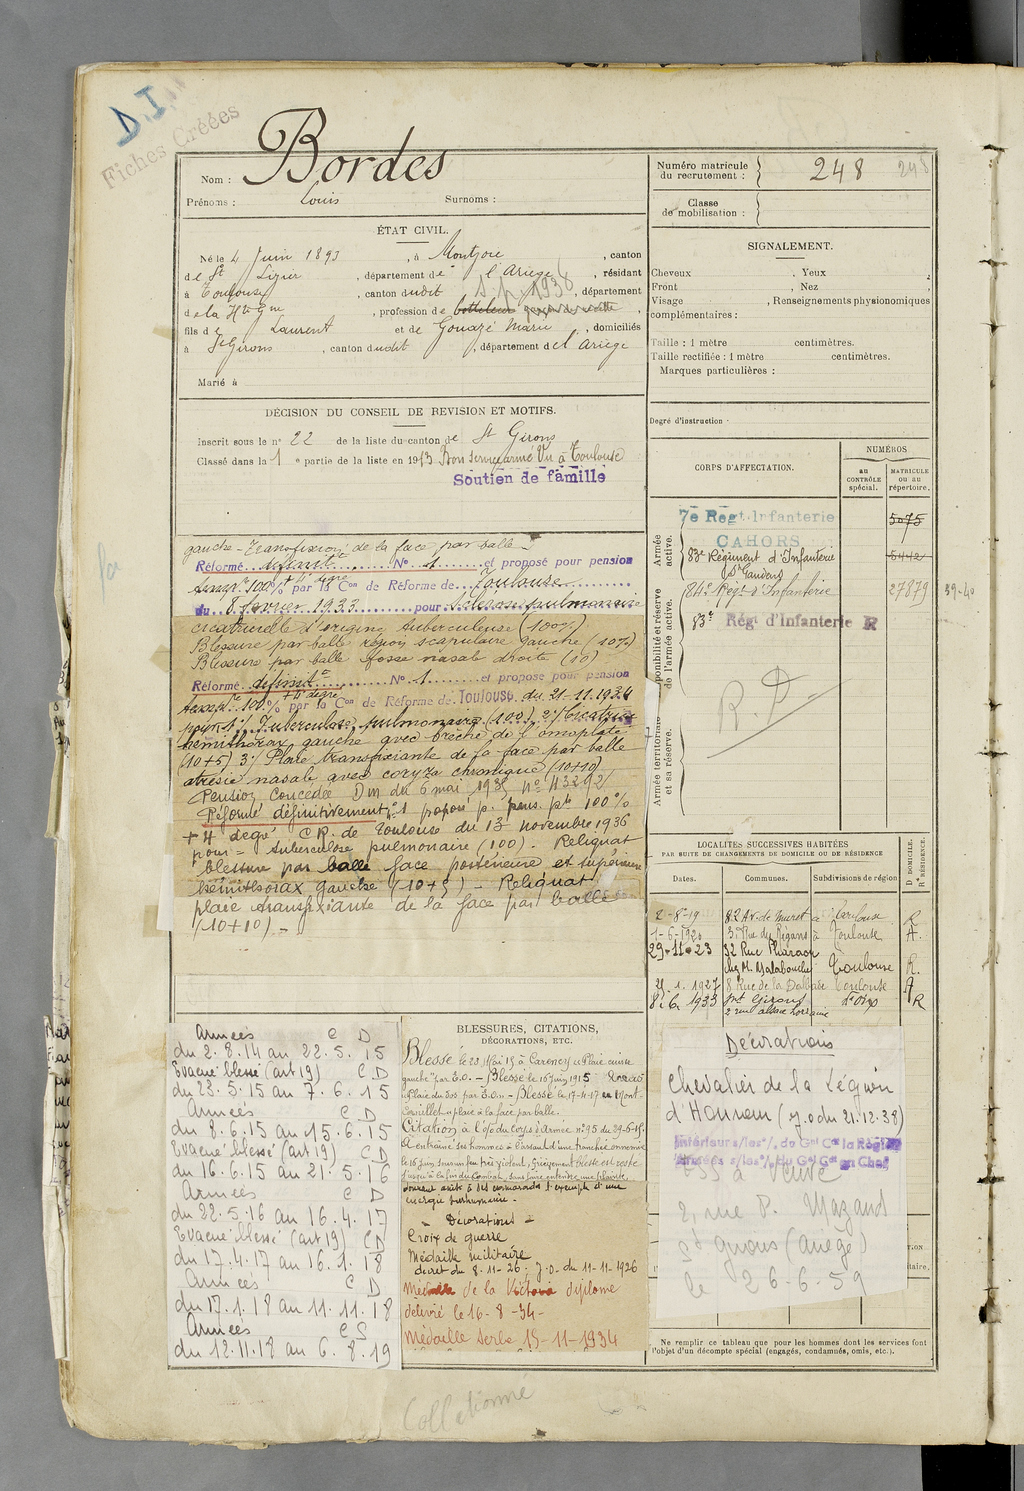 D.I.
Fiches Créées
Nom : Bordes
Prénoms : Louis Surnoms :
ÉTAT CIVIL.
Né le 4 Juin 1893, à Montjoie, canton
de St Lizier, département de l'Ariège, résidant
à Toulouse, canton dudit, département
de la Hte Gne, profession de
fils de Laurent et de Gouazé Marie, domiciliés
à St Girons, canton dudit, département de l'Ariège
Marié à
DÉCISION DU CONSEIL DE REVISION ET MOTIFS.
Inscrit sous le n° 22 de la liste du canton de St Girons
Classé dans la 1e partie de la liste en 1913 Bon service armé Vu à Toulouse
Soutien de famille
gauche - transfixion de la face par balle
Réformé définit No 1 et proposé pour pension
100% + 4e degré par la Con de Réforme de Toulouse
du 8 1933 pour
cicatricielle d'origine tuberculeuse (100%)
Blessure par balle région scapulaire gauche (10%)
Blessure par balle fosse nasale droite (10)
Réformé définitt No 1 et proposé pour pension
100% + 4e degré par la Con de Réforme de Toulouse du 21-11-1934
pour 1°/ Tuberculose pulmonaire (100) 2°/ Cicatrice
hémithorax gauche avec brèche de l'omoplate
(10+5) 3°/ Plaie transfixiante de la face par balle
atrésie nasale avec coryza chronique (10+10)
Pension concédée DM du 6 mai 1935 N° 43292
Réformé définitivement n°1 proposé p. pens. pte 100%
+ 4 degré C.R. de Toulouse du 13 novembre 1936
pour = tuberculose pulmonaire (100). Reliquat
blessure par balle face postérieure et supérieure
hémithorax gauche (10+5) - Reliquat
plaie transfixiante de la face par balle
(10+10) -
Armées C D
du 2.8.14 au 22.5.15
Evacué blessé (art 19) C D
du 23.5.15 au 7.6.15
Armées C D
du 8.6.15 au 15.6.15
Evacué blessé (art 19) C D
du 16.6.15 au 21.5.16
Armées C D
du 22.5.16 au 16.4.17
Evacué blessé (art 19) C D
du 17.4.17 au 16.1.18
Armées C D
du 17.1.18 au 11.11.18
Armées C S
du 12.11.18 au 6.8.19
BLESSURES, CITATIONS,
DÉCORATIONS, ETC.
Blessé le 23 Mai 15 à Carency "Plaie cuisse
gauche" par E.O. - Blessé le 16 Juin 1915
"Plaie du dos par E.O." - Blessé le 17-4-17 au Mont-
Cornillet "plaie à la face par balle.
Citation à l'o/ du Corps d'Armée n° 95 du 29-6-15.
A entraîné ses hommes à l'assaut d'une tranchée ennemie
le 16 Juin, sous un feu très violent, grièvement blessé est resté
jusqu'à la fin du Combat, sans faire entendre une plainte,
donnant ainsi à ses camarades l'exemple et une
énergie surhumaine.
- Décorations -
Croix de guerre
Médaille militaire
décret du 8-11-26. J.O. du 11-11-1926
Médaille de la Victoire diplome
délivré le 16-8-34-
Médaille Serbe 15-11-1934
Collationné
Numéro matricule
du recrutement : 248 248
Classe
de mobilisation :
SIGNALEMENT.
Cheveux , Yeux ,
Front , Nez ,
Visage , Renseignements physionomiques
complémentaires :
Taille : 1 mètre centimètres.
Taille rectifiée : 1 mètre centimètres.
Marques particulières :
Degré d'instruction
CORPS D'AFFECTATION.
NUMÉROS
au CONTRÔLE spécial.
MATRICULE ou au répertoire.
Armée active.
7e Régt Infanterie 5075
CAHORS
83e Régiment d'Infanterie
St Gaudens
Disponibilité et réserve de l'armée active.
84e Régt d'Infanterie 27879 39-40
83e Régt d'Infanterie R
R.D
Armée territoriale et sa réserve.
LOCALITÉS SUCCESSIVES HABITÉES
PAR SUITE DE CHANGEMENTS DE DOMICILE OU DE RÉSIDENCE
Dates. Communes. Subdivisions de région
D DOMICILE. R RÉSIDENCE.
2-8-19 82 Av. de Muret à Toulouse R
1-6-1920 3, Rue du à Toulouse R.
29-11-23 32 Rue Pharaon
chez M. Malabouche Toulouse R.
1. 1927 8 Rue de la Dalbade Toulouse R
8.6.1933 St Girons d'Foix R
2 rue alsace Lorraine
Décorations
Chevalier de la Légion
d'Honneur (J.O du 21.12.38)
Veuve
2, rue P. Mazaud
St Girons (Ariège)
le 26-6-59
Ne remplir ce tableau que pour les hommes dont les services font
l'objet d'un décompte spécial (engagés, condamnés, omis, etc.).